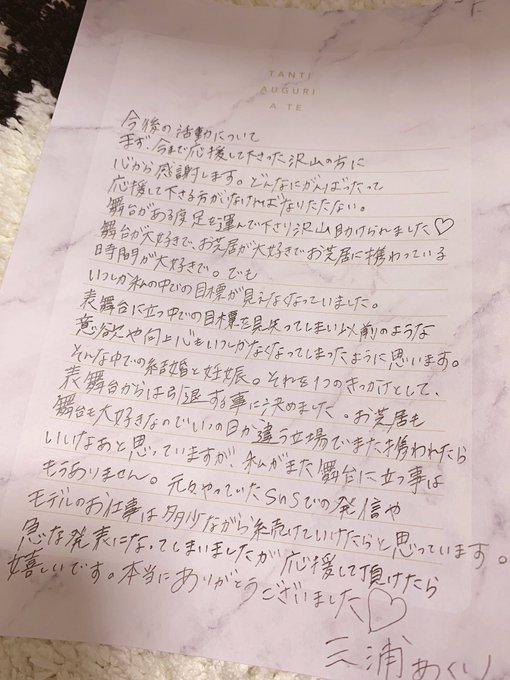 TANTI
AUGURI
A TE
今後の活動について
まず、今まで応援して下さった沢山の方に
心から感謝します。どんなにがんばったって
応援して下さる方がいなければなりたたない。
舞台がある度足を運んで下さり沢山助けられました♡
舞台が大好きで、お芝居が大好きでお芝居に携わっている
時間が大好きで。でも
いつしか私の中での目標が見えなくなっていました。
表舞台に立つ中での目標を見失ってしまい以前のような
意欲や向上心もいつしかなくなってしまったように思います。
そんな中での結婚と妊娠。それを1つのきっかけとして、
表舞台からは引退する事に決めました。お芝居も
舞台も大好きなのでいつの日か違う立場でまた携われたら
いいなあと思っていますが、私がまた舞台に立つ事は
もうありません。元々やっていたSNSでの発信や
モデルのお仕事は多少ながら続けていけたらと思っています。
急な発表になってしまいましたが応援して頂けたら
嬉しいです。本当にありがとうございました♡
三浦あくり